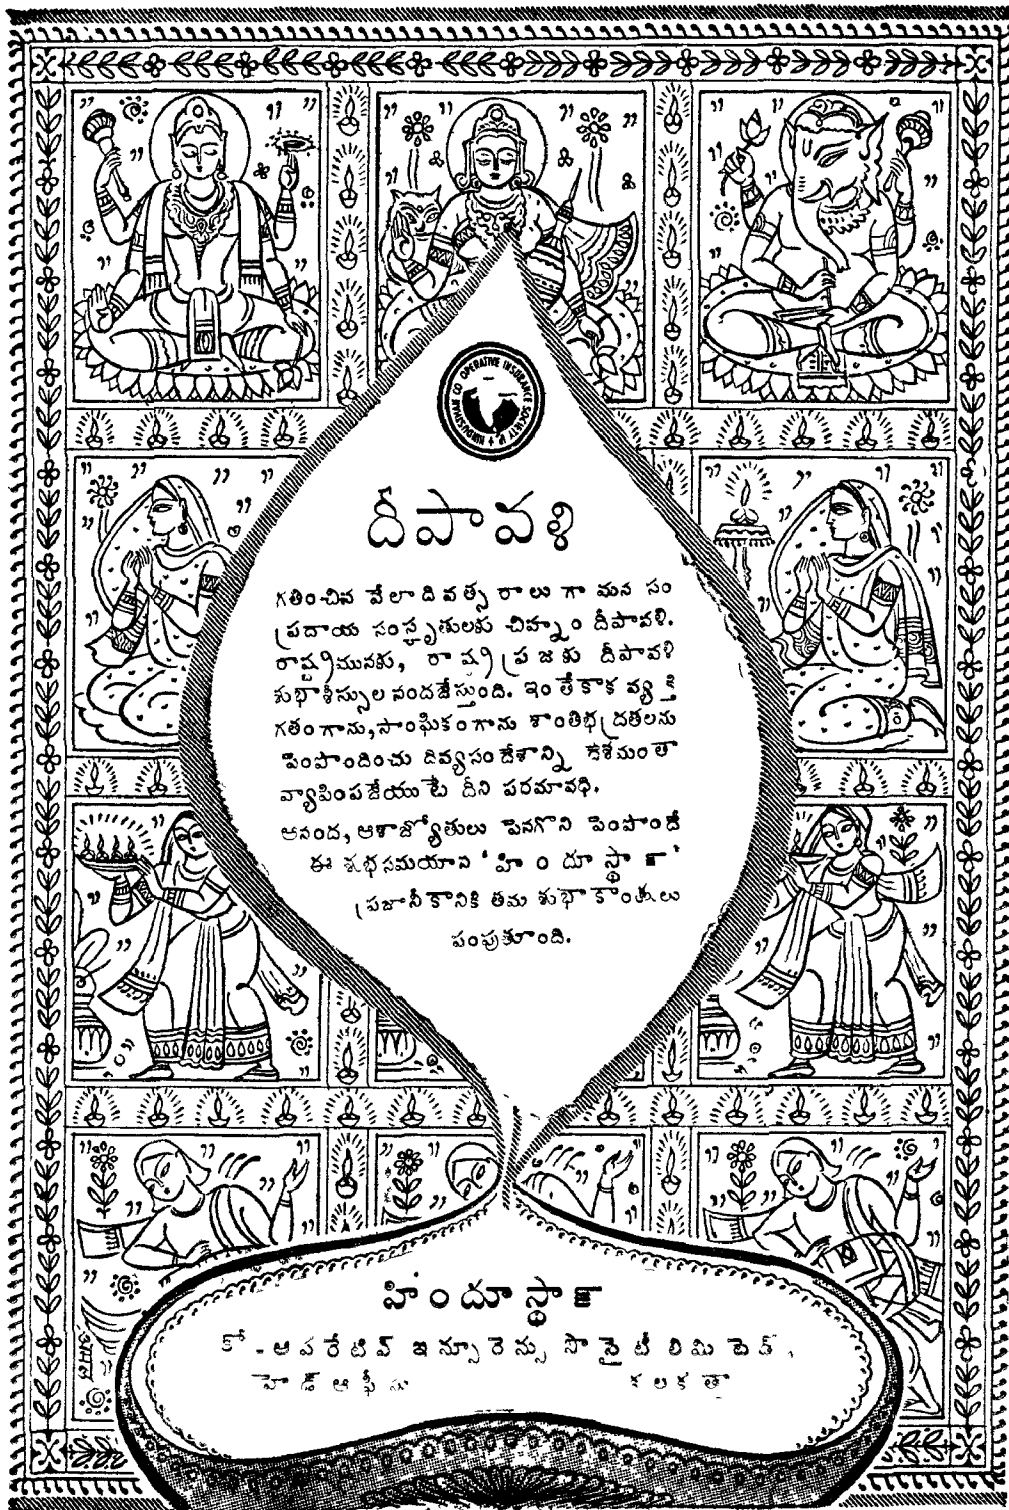 HINDUSTHAN CO OPERATIVE INSURANCE SOCIETY
దీపావళి
గతించిన వేలాది వత్సరాలుగా మన సం
ప్రదాయ సంస్కృతులకు చిహ్నం దీపావళి.
రాష్ట్రమునకు, రాష్ట్ర ప్రజకు దీపావళి
శుభాశీస్సుల నందజేస్తుంది. ఇంతేకాక వ్యక్తి
గతంగాను, సాంఘికంగాను శాంతిభద్రతలను
పెంపొందించు దివ్యసందేశాన్ని దేశమంతా
వ్యాపింపజేయుటే దీని పరమావధి.
ఆనంద, ఆశాజ్యోతులు పెనగొని పెంపొందే
ఈ శుభసమయాన 'హిందూస్థాన్'
ప్రజానీకానికి తమ శుభాకాంక్షలు
పంపుతూంది.
హిందూస్థాన్
కో-ఆపరేటివ్ ఇన్సూరెన్సు సొసైటీ లిమిటెడ్,
హెడ్ ఆఫీసు కలకత్తా